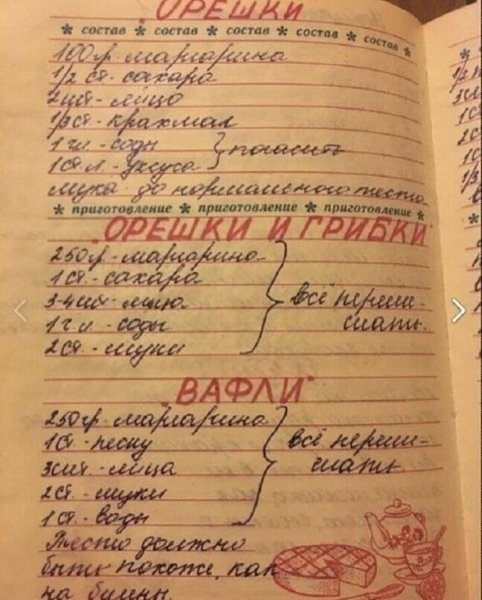 "ОРЕШКИ"
* состав * состав * состав * состав * состав *
100 гр. маргарина
1/2 ст. - сахара
2 шт - яйцо
1/3 ст - крахмал
1 ч л. - соды } погасить
1 ст л. - уксуса
мука - до нормального теста
* приготовление * приготовление * приготовление *
"ОРЕШКИ И ГРИБКИ"
250 гр. - маргарина
1 ст. - сахара
3-4 шт - яйца } всё переме-
1 ч л. - соды шать.
2 ст. - муки
"ВАФЛИ"
250 гр. маргарина
1 ст - песку } всё переме-
3 шт - яйца шать
2 ст. - муки
1 ст. - воды
Тесто должно
быть похоже, как
на блины.